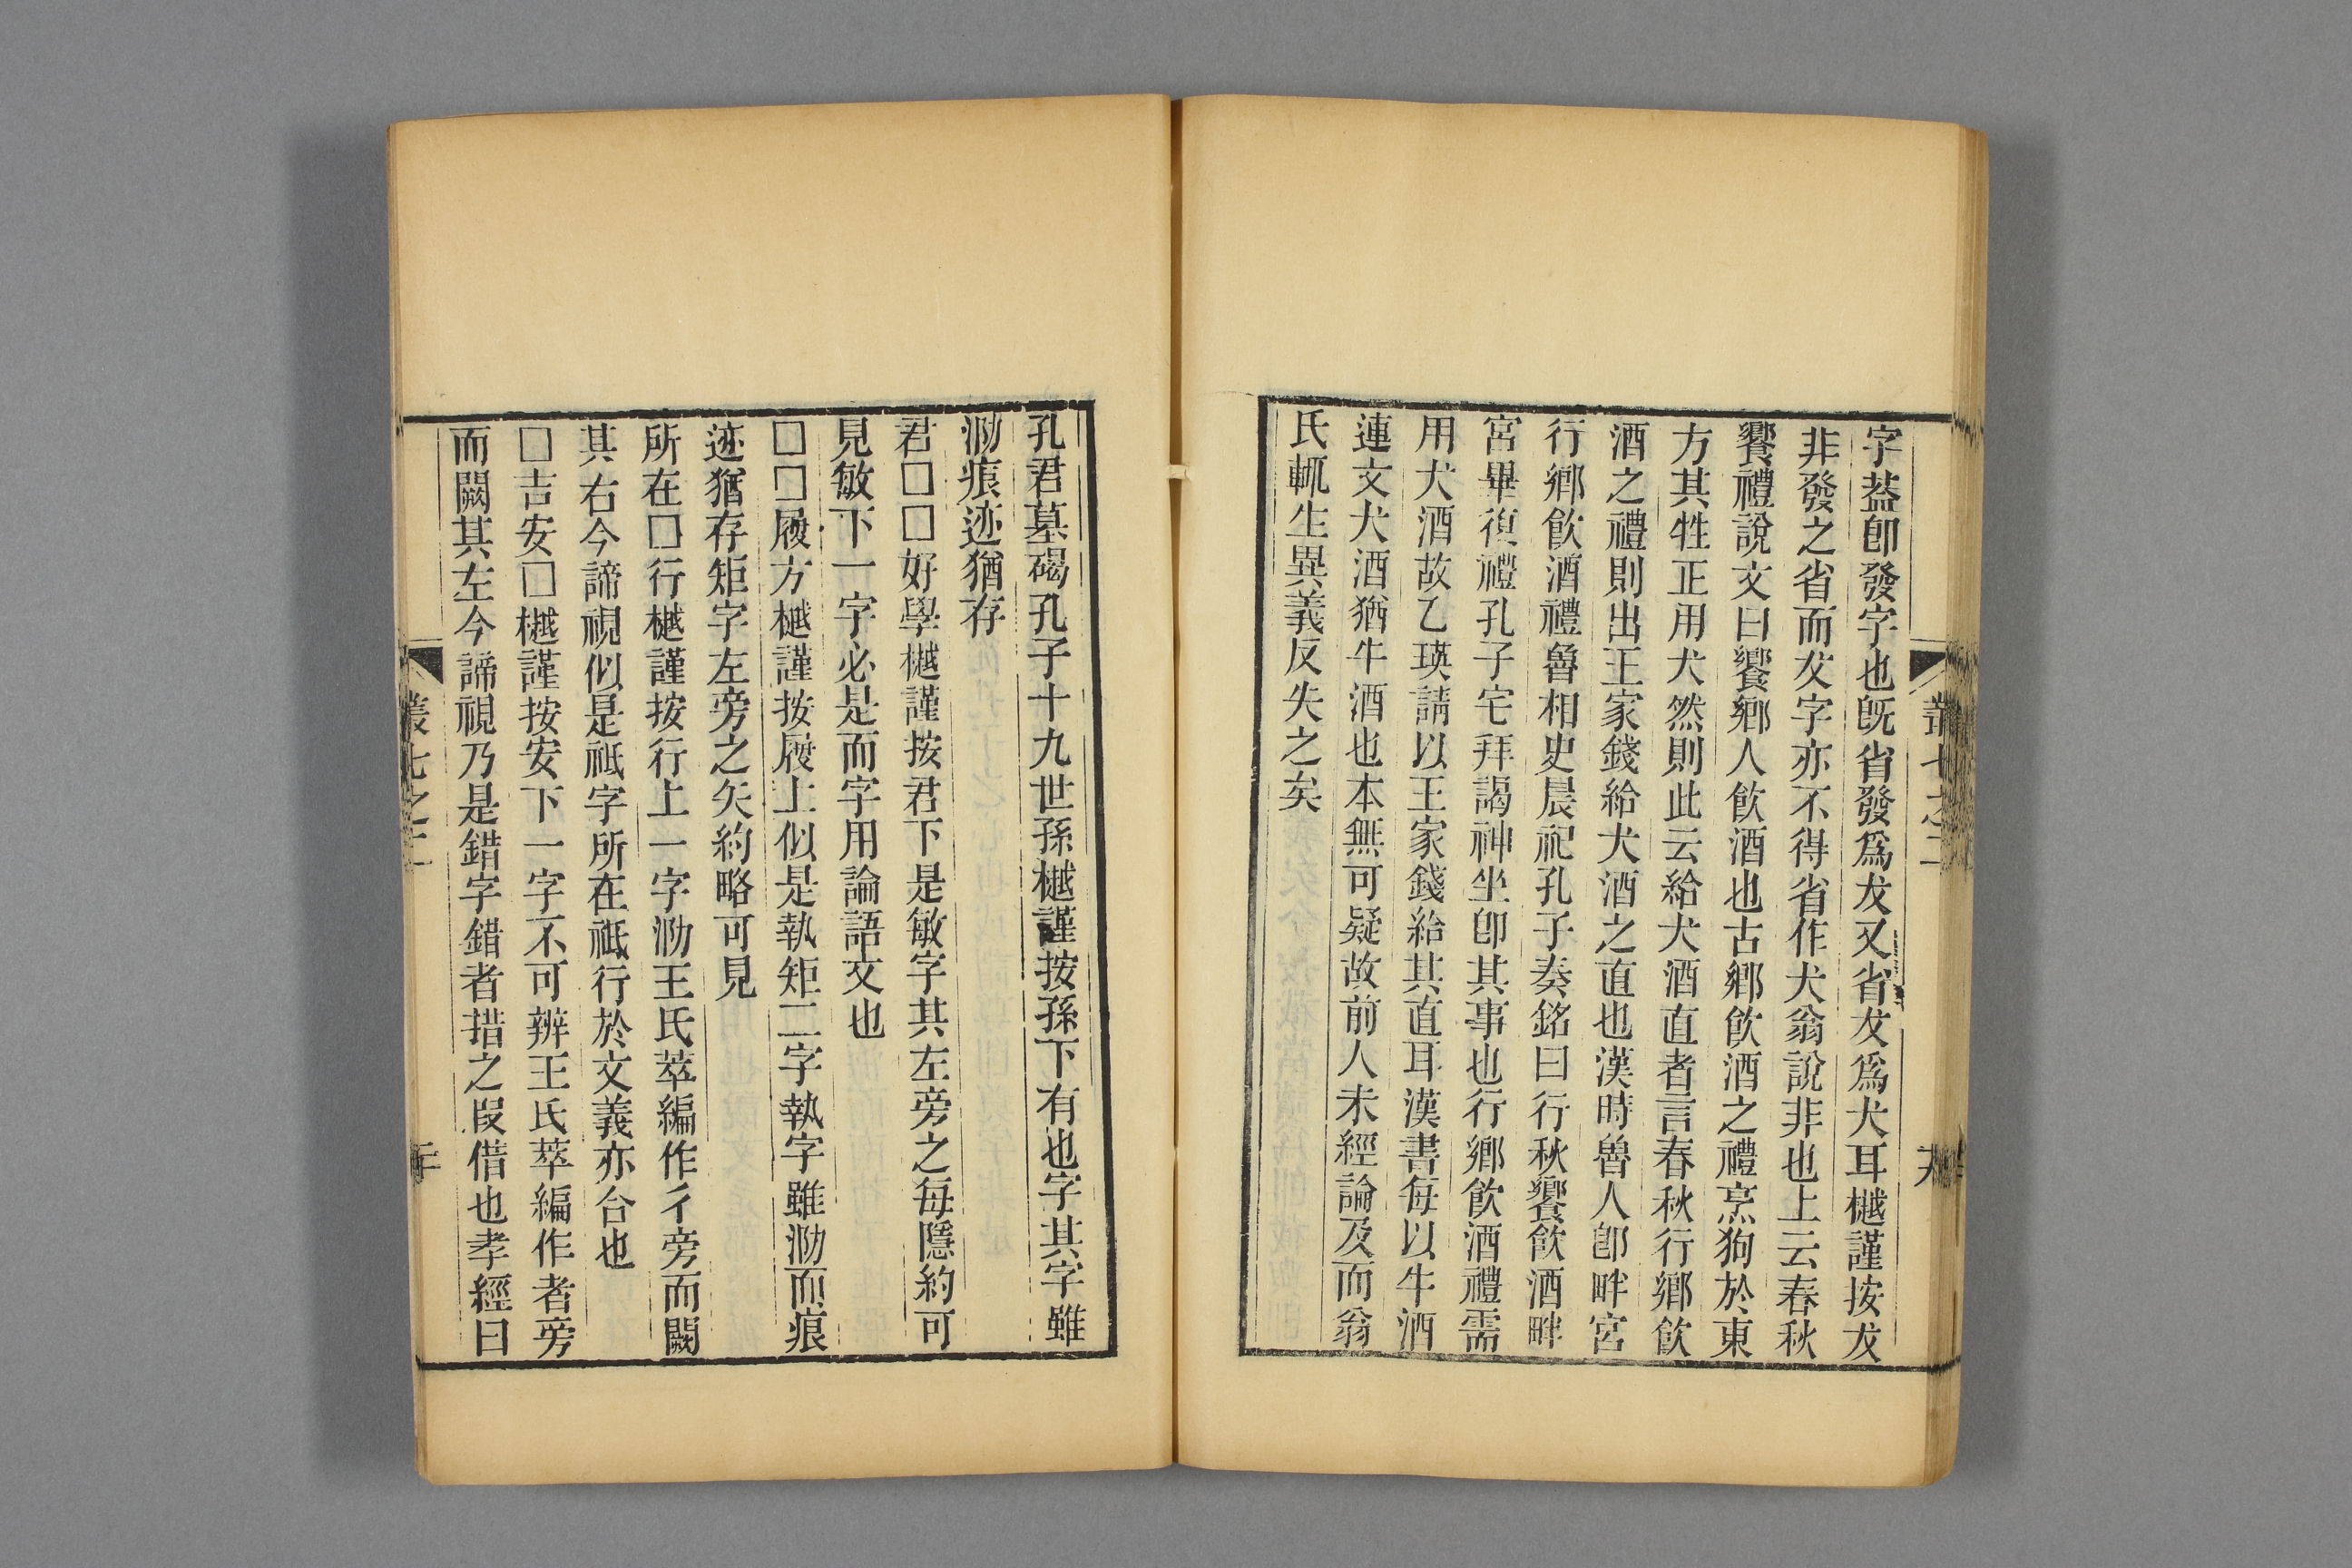 字葢卽發字也旣省發爲犮又省犮爲犬耳樾謹按犮
非發之省而犮字亦不得省作犬翁說非也上云春秋
饗禮說文曰饗鄉人飮酒也古鄉飮酒之禮烹狗於東
方其牲正用犬然則此云給犬酒直者言春秋行鄉飮
酒之禮則出王家錢給犬酒之直也漢時魯人卽畔宮
行鄉飮酒禮魯相史晨祀孔子奏銘曰行秋饗飮酒畔
宮畢復禮孔子宅拜謁神坐卽其事也行鄉飮酒禮需
用犬酒故乙瑛請以王家錢給其直耳漢書每以牛酒
連文犬酒猶牛酒也本無可疑故前人未經論及而翁
氏輒生異義反失之矣
叢七之二
孔君墓碣孔子十九世孫樾謹按孫下有也字其字雖
泐痕迹猶存
君□□好學樾謹按君下是敏字其左旁之每隱約可
見敏下一字必是而字用論語文也
□□履方樾謹按履上似是執矩二字執字雖泐而痕
迹猶存矩字左旁之矢約略可見
所在□行樾謹按行上一字泐王氏萃編作彳旁而闕
其右今諦視似是祗字所在祗行於文義亦合也
□吉安□樾謹按安下一字不可辨王氏萃編作者旁
而闕其左今諦視乃是錯字錯者措之叚借也孝經曰
叢七之二